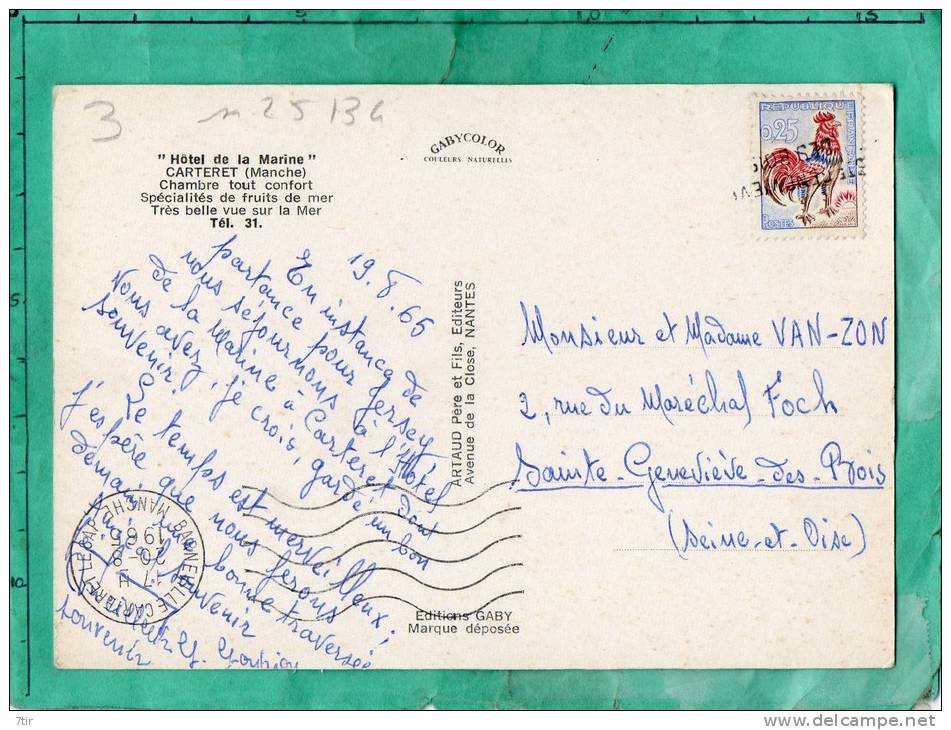 3
25 134
" Hôtel de la Marine "
CARTERET (Manche)
Chambre tout confort
Spécialités de fruits de mer
Très belle vue sur la Mer
Tél. 31.
GABYCOLOR
COULEURS NATURELLES
REPUBLIQUE
0,25
POSTES
19.8.65
En instance de
partance pour Jersey,
nous séjournons à l'Hôtel
de la Marine à Carteret dont
Vous avez, je crois, gardé un bon
souvenir.
Le temps est merveilleux ;
j'espère que nous ferons
demain une bonne traversée
souvenir
souvenir
ARTAUD Père et Fils, Editeurs
Avenue de la Close, NANTES
Monsieur et Madame VAN-ZON
2, rue du Maréchal Foch
Sainte-Geneviève-des-Bois
(Seine-et-Oise)
BARNEVILLE CARTERET LE
MANCHE
17 H
20-8
1965
Editions GABY
Marque déposée
7tir
www.delcampe.net